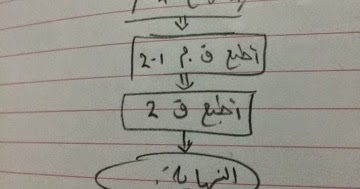 اطبع ق . م 1-2
اطبع ق 2
النهاية.